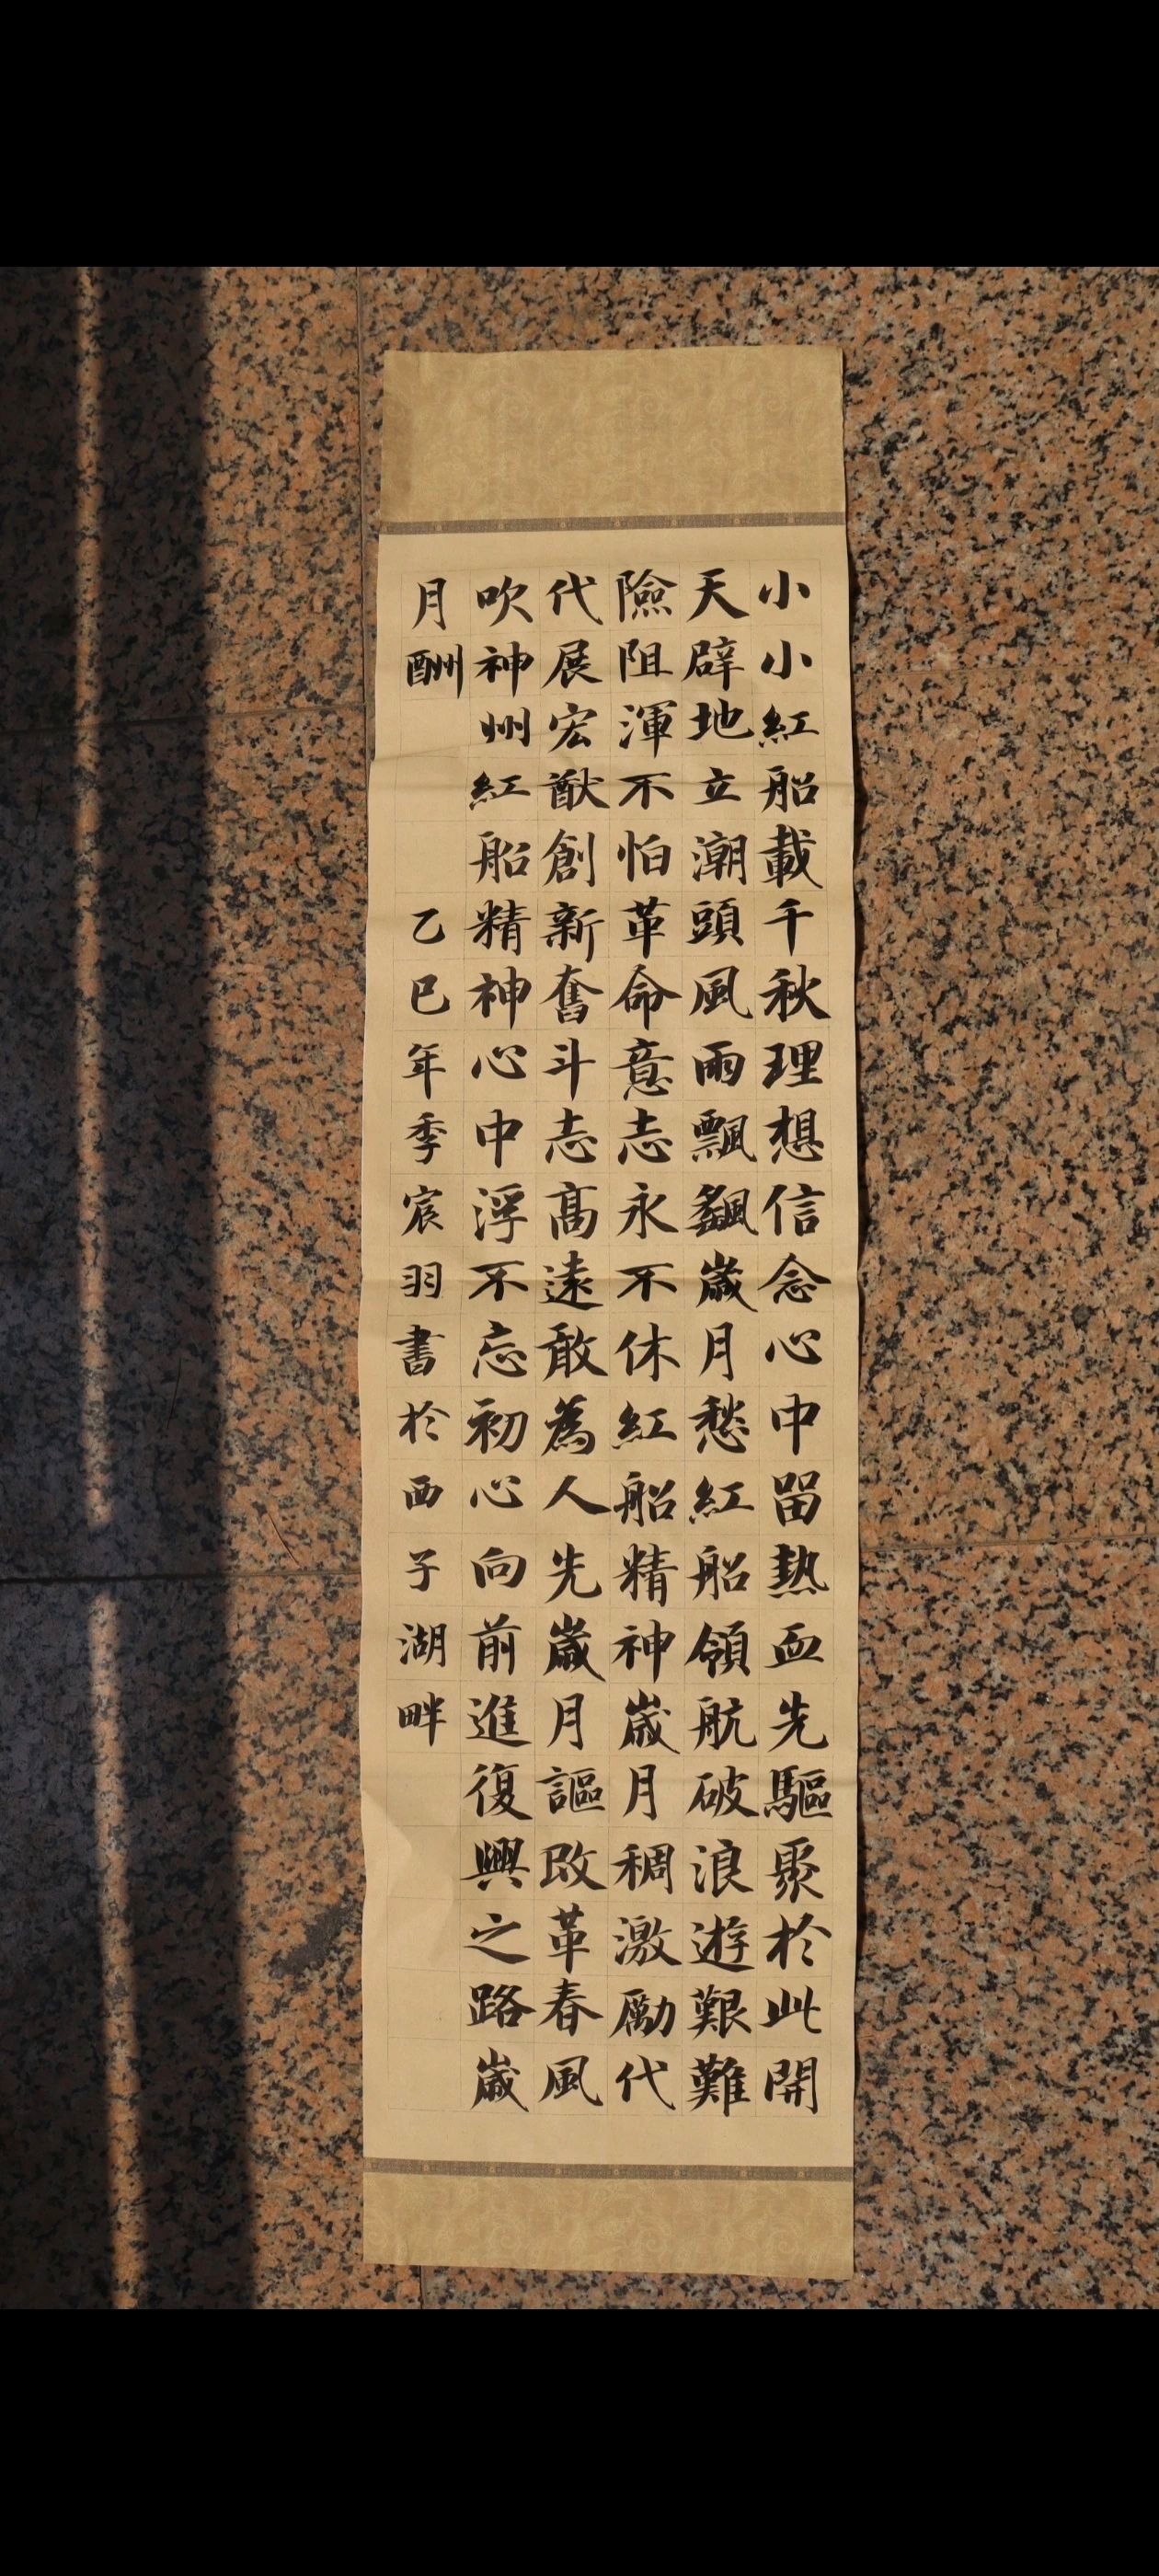 小小紅船載千秋理想信念心中留熱血先驅聚於此開
天辟地立潮頭風雨飄颻歲月愁紅船領航破浪遊艱難
險阻渾不怕革命意志永不休紅船精神歲月稠激勵代
代展宏猷創新奮斗志高遠敢為人先歲月謳改革春風
吹神州紅船精神心中浮不忘初心向前進復興之路歲
月酬
乙巳年季宸羽書於西子湖畔